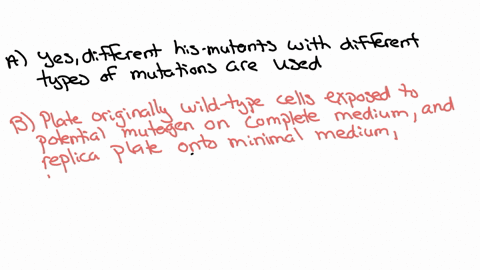 A) Yes, different his-mutants with different
types of mutations are used
B) Plate originally wild-type cells exposed to
potential mutagen on complete medium, and
replica plate onto minimal medium,